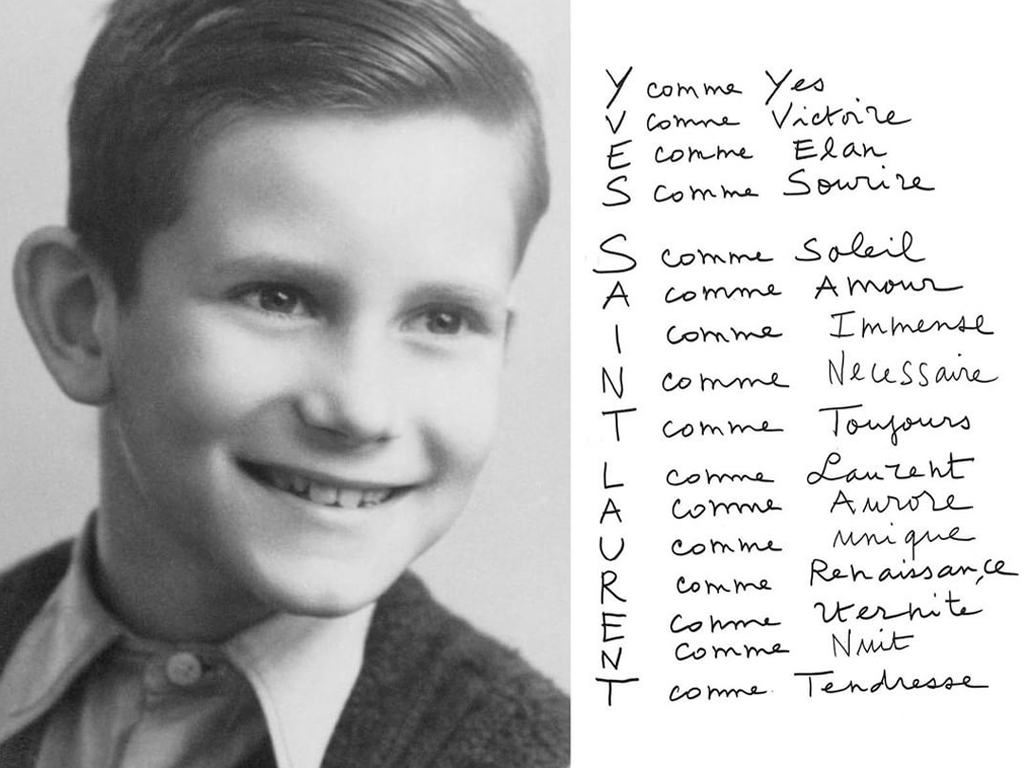 Y comme Yes
V comme Victoire
E comme Elan
S comme Sourire
S comme Soleil
A comme Amour
I comme Immense
N comme Necessaire
T comme Toujours
L comme Laurent
A comme Aurore
U comme unique
R comme Renaissance
E comme eternite
N comme Nuit
T comme Tendresse